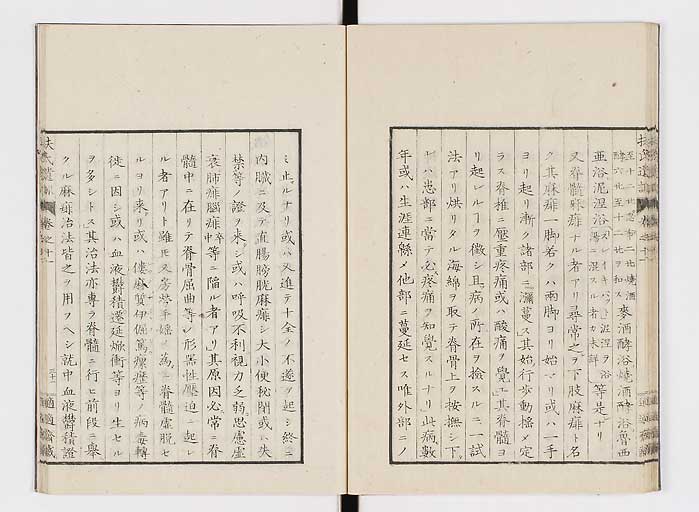 麥酒酵浴燒酒酵浴魯西
亜浴泥涅浴
等是ナリ
又脊髓麻痺ナル者アリ尋常之ヲ下肢麻痺ト名
ク其麻痺一脚若クハ兩脚ヨリ始マリ或ハ一手
ヨリ起リ漸ク諸部ニ瀰蔓ス其始行歩動揺メ定
ラス脊椎ニ壓重疼痛或ハ酸痛ヲ覺ヱ其脊髓ヨ
リ起レルヿヲ徴シ且病ノ所在ヲ撿スルニ一試
法アリ烘リタル海綿ヲ取テ脊骨上ヲ按撫シ下
レハ患部ニ當テ必疼痛ヲ知覺スルナリ此病數
年或ハ生涯連緜メ他部ニ蔓延セス唯外部ニノ
ミ止ルナリ或ハ又進テ十全ノ不遂ヲ起シ終ニ
内臓ニ及テ直腸膀胱麻痺シ大小便秘閉或ハ失
禁等ノ證ヲ來シ或ハ呼吸不利視力乏弱思慮虚
衰肺痺腦痺卒中等ニ陥ル者アリ其原因必常ニ脊
髓中ニ在リテ脊骨屈曲等ノ形器性壓迫ニ起レ
ル者アリト雖モ又房勞手婬ノ為ニ脊髓虚脱セ
ルヨリ來リ或ハ僂麻質伊佝篤瘰癧等ノ病毒轉
徙ニ因シ或ハ血液鬱積遷延焮衝等ヨリ生セル
ヲ多シトス其治法亦專ラ脊髓ニ行ヒ前段ニ擧
クル麻痺治法皆之ヲ用フヘシ就中血液鬱積證
扶氏遺訓
卷之十二
適適齋藏